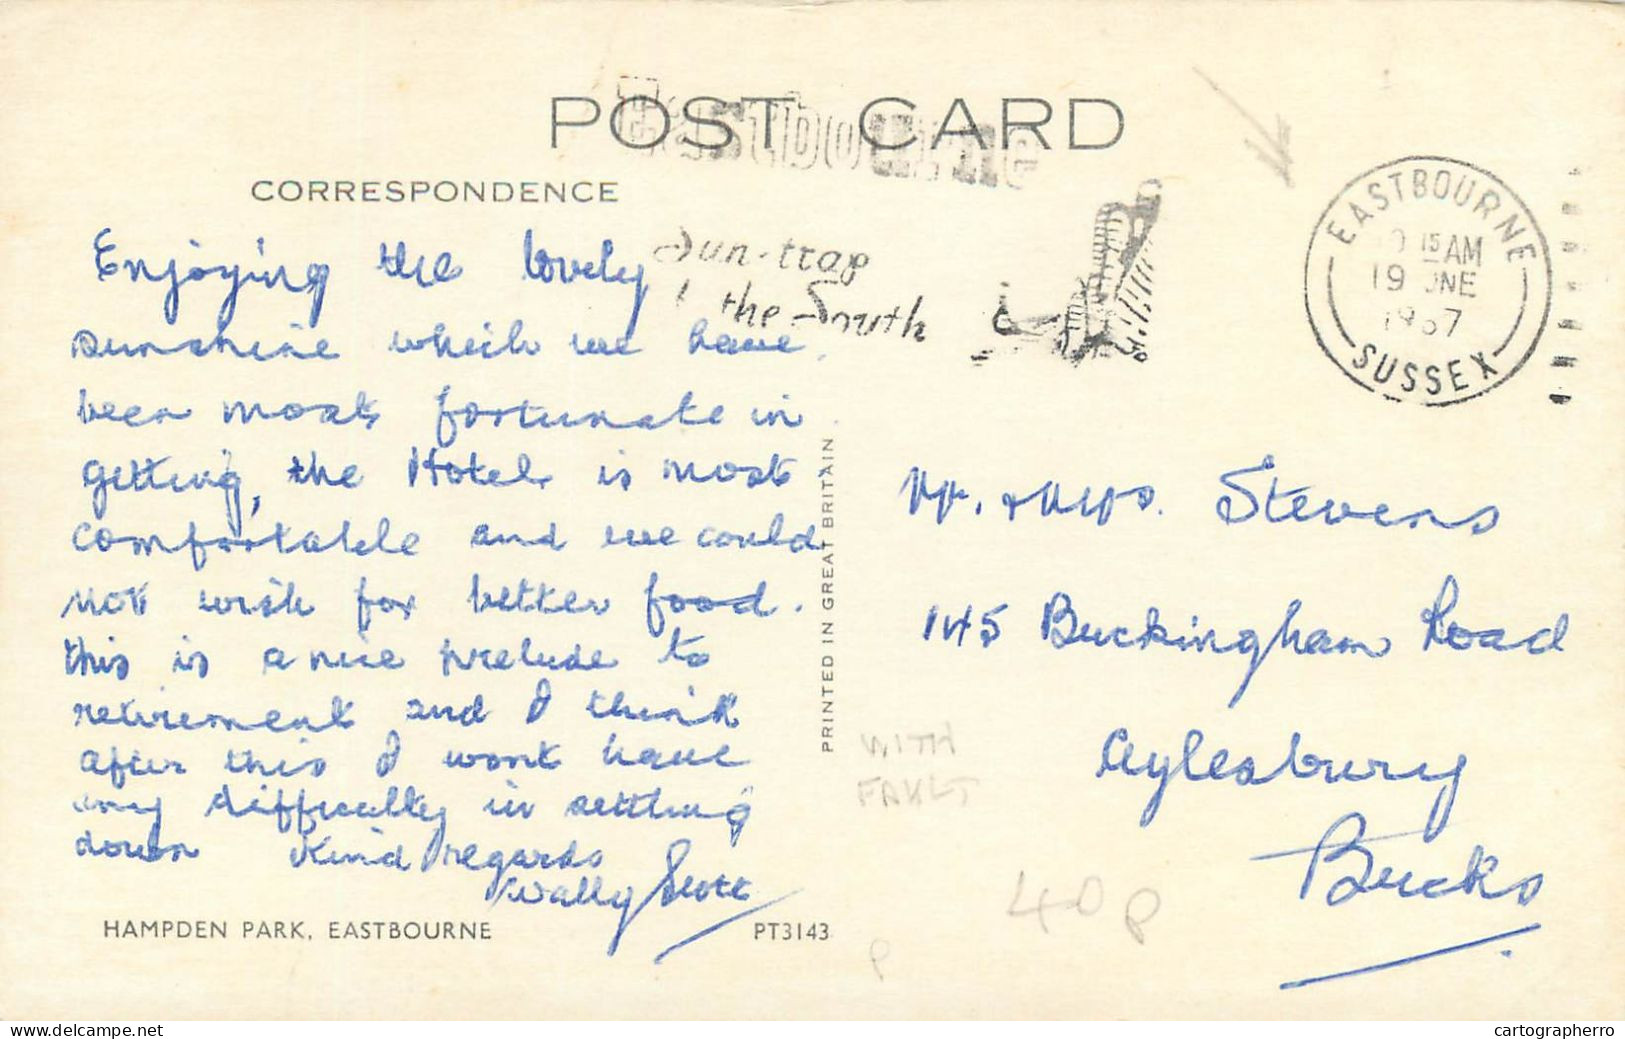 POST CARD
Eastbourne
CORRESPONDENCE
Sun-trap
the South
EASTBOURNE
15 AM
19 JNE
1967
SUSSEX
Enjoying the lovely
sunshine which we have
been most fortunate in
getting, the Hotel is most
comfortable and we could
not wish for better food.
this is a nice prelude to
retirement and I think
after this I wont have
any difficulty in settling
down Kind regards
Wally Scott
HAMPDEN PARK, EASTBOURNE
PT3143
PRINTED IN GREAT BRITAIN
Mr. & Mrs. Stevens
145 Buckingham Road
Aylesbury
Bucks
WITH
FAULT
40p
P
delcampe.net
cartographerro